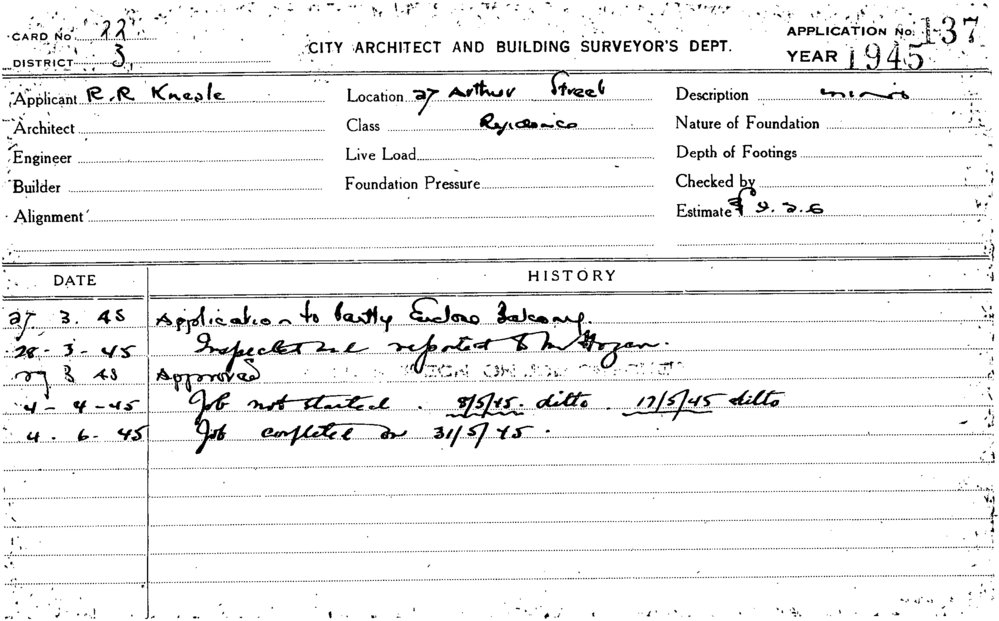 CARD No 22
DISTRICT 3
CITY ARCHITECT AND BUILDING SURVEYOR'S DEPT.
APPLICATION No. 137
YEAR 1945
Applicant R.R Location 27 Arthur Street Description minor
Architect Class Residence Nature of Foundation
Engineer Live Load Depth of Footings
Builder Foundation Pressure Checked by
Alignment Estimate £
DATE HISTORY
27 3. 45 Application to Partly Enclose Balcony.
28 - 3 - 45 Inspected and reported to Mr Hogan.
29 3 45 Approved
4 - 4 - 45 Job not started . 8/5/45. ditto . 17/5/45 ditto
4 . 6 . 45 Job completed on 31/5/45 .